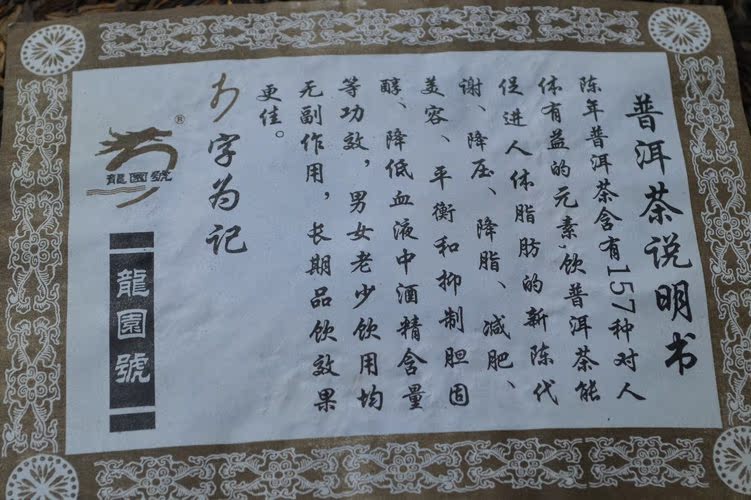 普洱茶说明书
陈年普洱茶含有157种对人
体有益的元素,饮普洱茶能
促进人体脂肪的新陈代
谢、降压、降脂、减肥、
美容、平衡和抑制胆固
醇、降低血液中酒精含量
等功效，男女老少饮用均
无副作用，长期品饮效果
更佳。
字为记
®
龍園號
龍園號